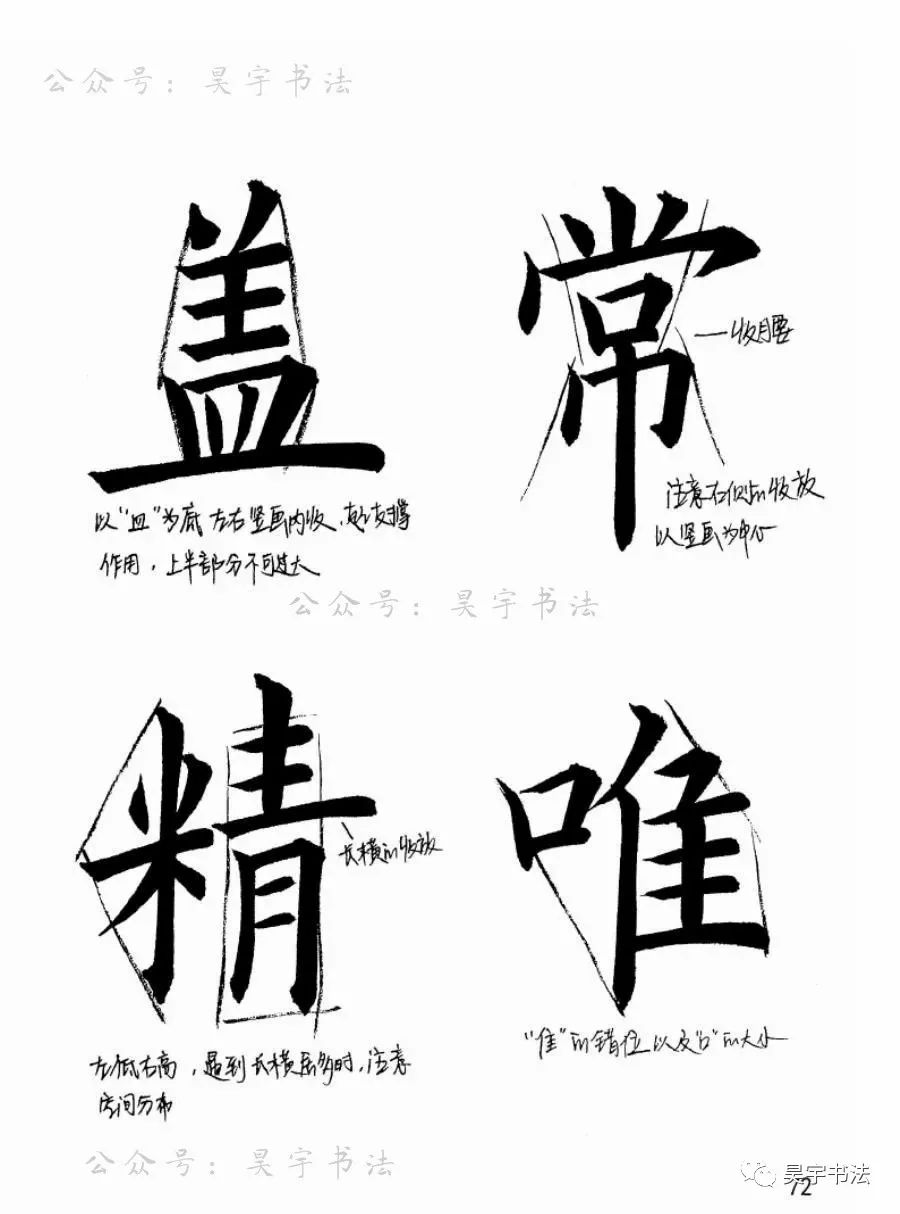 公众号：昊宇书法
盖
常
收腰
以“皿”为底 左右竖画内收，起支撑
作用，上半部分不可过大
注意左侧的收放
以竖画为中心
公众号：昊宇书法
精
唯
长横的收放
左低右高，遇到长横居多时，注意
空间分布
“隹”的错位以及“口”的大小
公众号：昊宇书法
昊宇书法
72